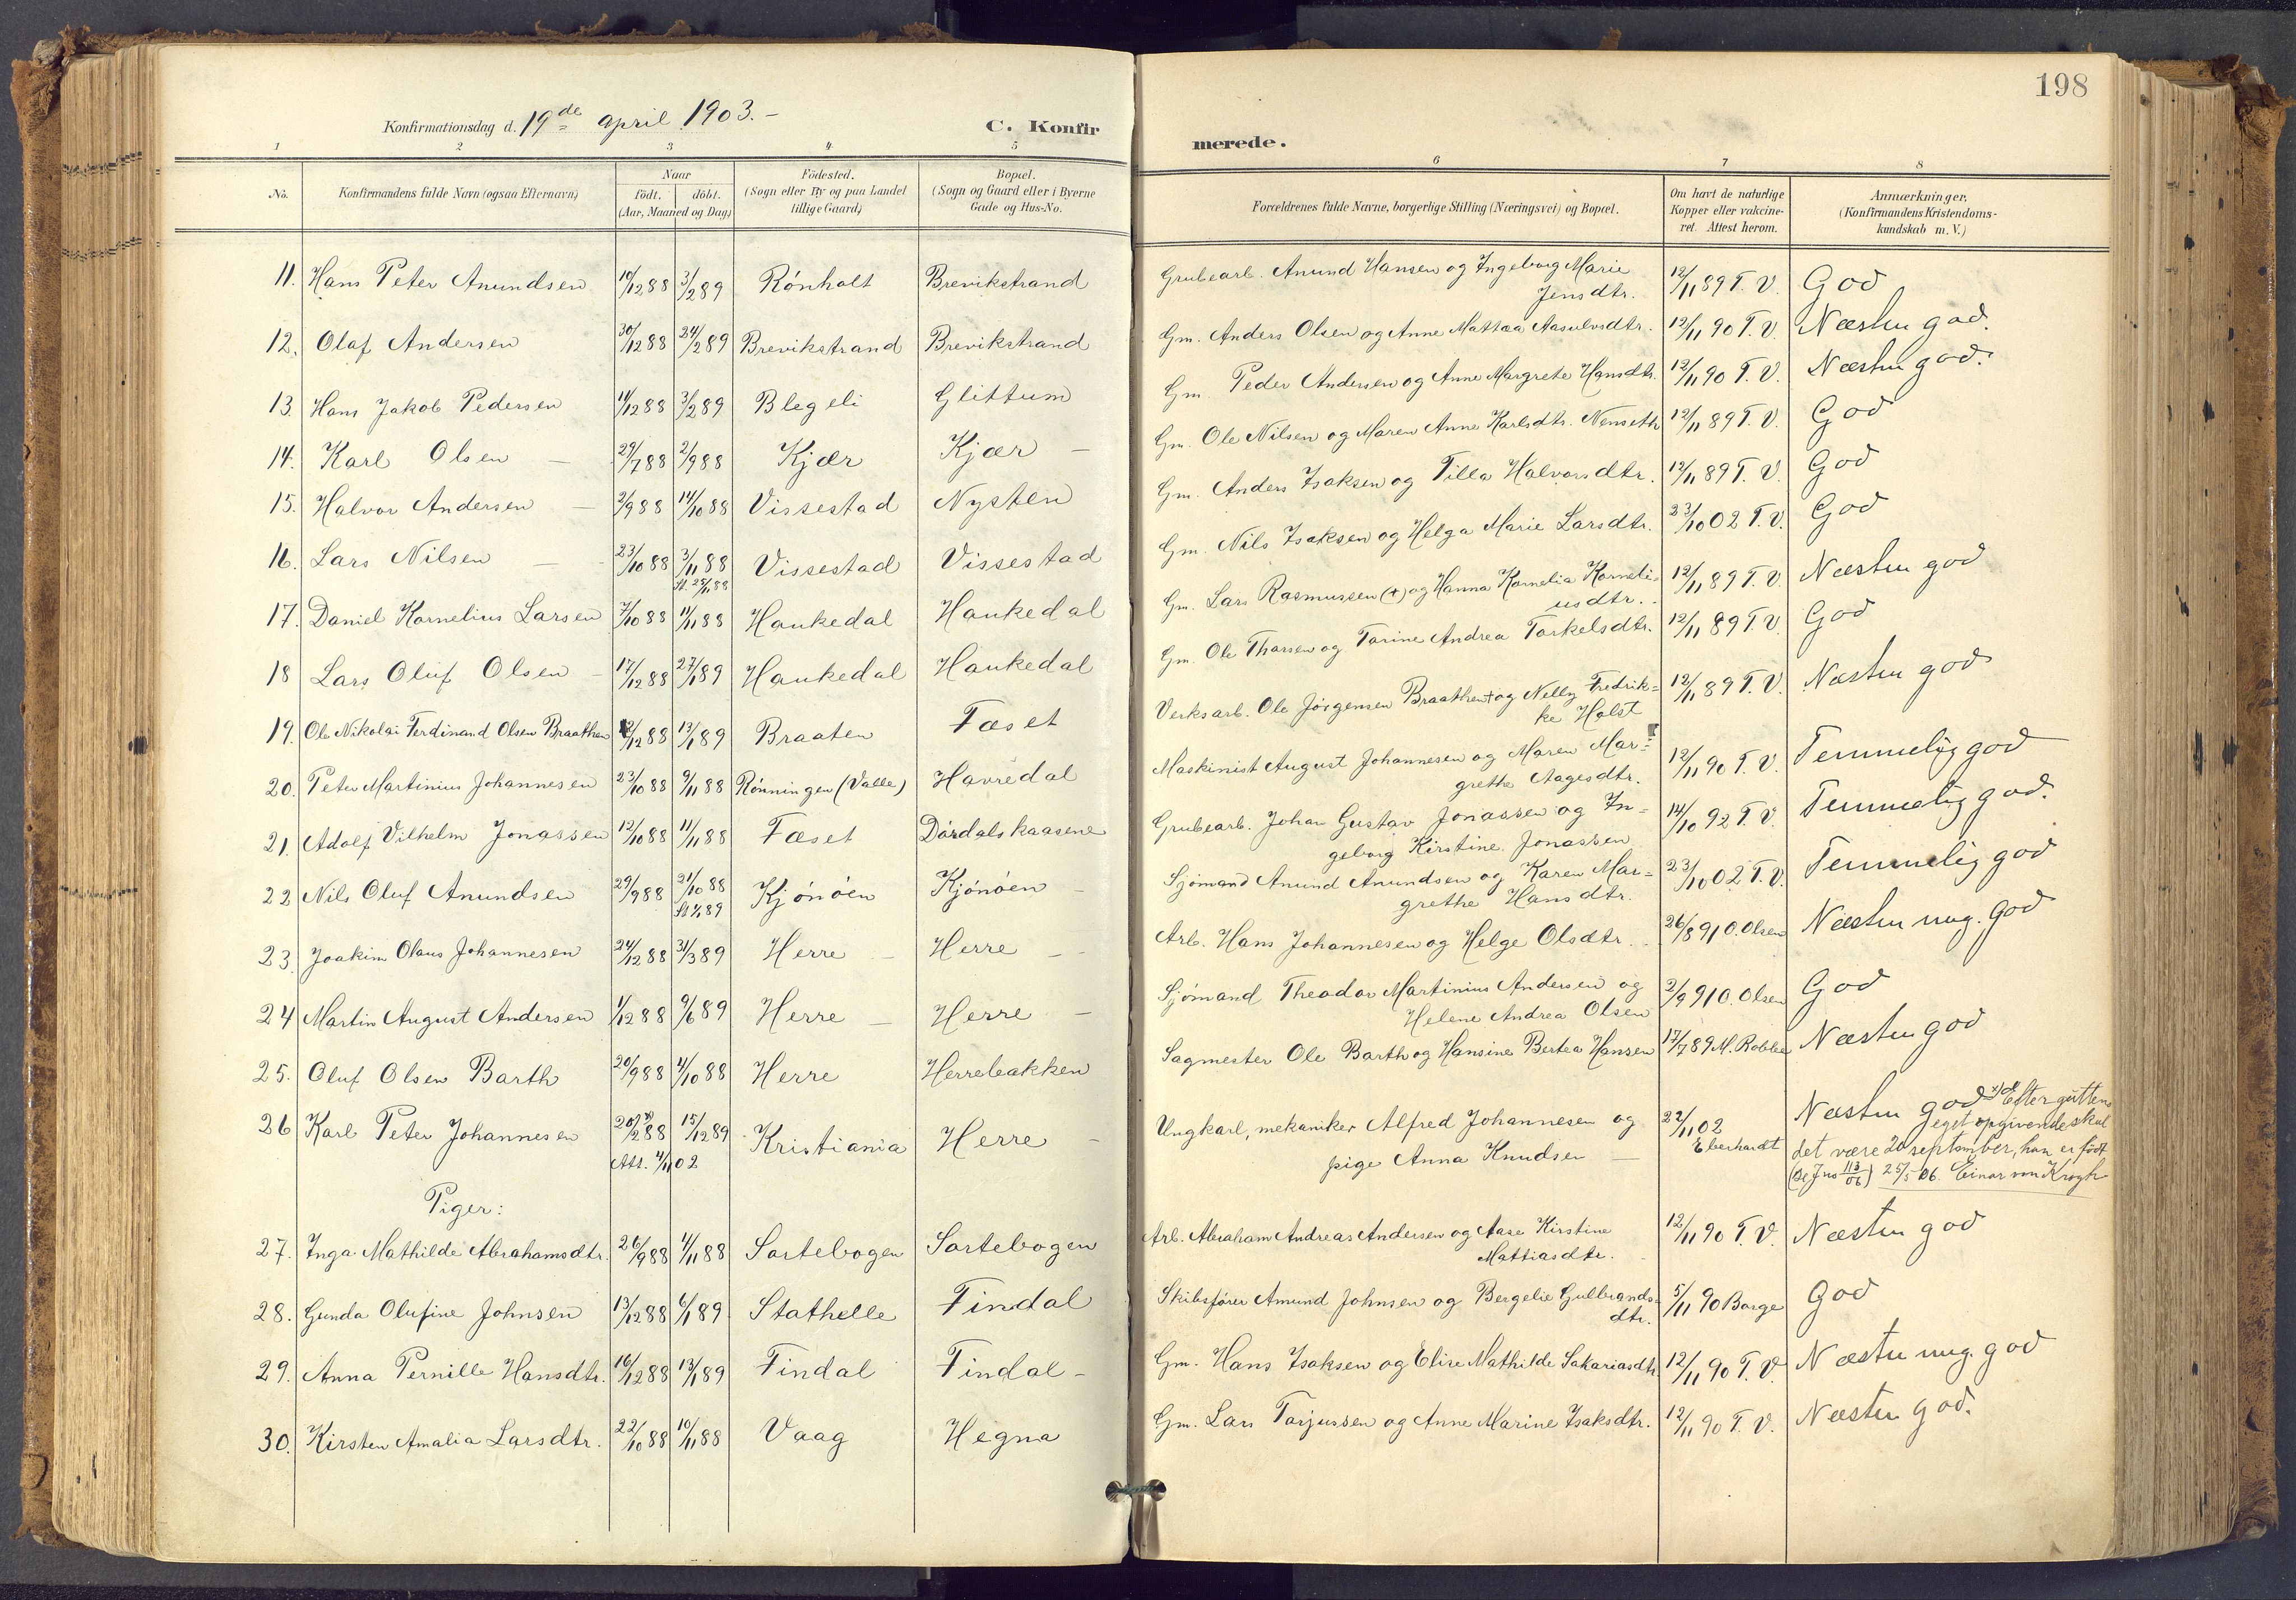 198
Konfirmationsdag d. 19de april 1903.-
C. Konfir
merede.
1 2 3 4 5 6 7 8
No. Konfirmandens fulde Navn (ogsaa Efternavn) Naar födt, döbt. (Aar, Maaned og Dag) Födested. (Sogn eller By og paa Landet tillige Gaard) Bopæl. (Sogn og Gaard eller i Byerne Gade og Hus-No. Forældrenes fulde Navne, borgerlige Stilling (Næringsvei) og Bopæl. Om havt de naturlige Kopper eller vakcineret. Attest herom. Anmærkninger. (Konfirmandens Kristendomskundskab m. V.)
11. Hans Peter Anundsen 10/12 88 3/2 89 Rönholt Brevikstrand Grubearb. Anund Hansen og Ingeborg Marie Jensdtr. 12/11 89 T. V. God
12. Olaf Andersen 30/12 88 24/2 89 Brevikstrand Brevikstrand Gm. Anders Olsen og Anne Mattea Aasulvsdtr. 12/11 90 T. V. Næsten god.
13. Hans Jakob Pedersen 11/12 88 3/2 89 Blegeli Glittum Gm. Peder Andersen og Anne Margrete Hansdtr. 12/11 90 T. V. Næsten god.
14. Karl Olsen — 29/7 88 2/9 88 Kjær Kjær — Gm. Ole Nilsen og Maren Anne Karlsdtr. Nenseth 12/11 89 T. V. God
15. Halvor Andersen — 2/9 88 14/10 88 Vissestad Nysten Gm. Anders Isaksen og Tilla Halvorsdtr. 12/11 89 T. V. God
16. Lars Nilsen — 23/10 88 3/11 88 St. 25/11 88 Vissestad Vissestad Gm. Nils Isaksen og Helga Marie Larsdtr. 23/10 02 T. V. God
17. Daniel Kornelius Larsen 7/10 88 11/11 88 Haukedal Haukedal Gm. Lars Rasmussen (+) og Hanna Kornelia Korneliusdtr. 12/11 89 T. V. Næsten god
18 Lars Oluf Olsen — 17/12 88 27/1 89 Haukedal Haukedal Gm. Ole Thorsen og Torine Andrea Torkelsdtr. 12/11 89 T. V. God
19. Ole Nikolai Ferdinand Olsen Braathen 12/12 88 13/1 89 Braaten Fæset Verksarb. Ole Jörgensen Braathen + og Nelly Fredrikke Holst 12/11 89 T. V. Næsten god
20. Peter Martinius Johannesen 23/10 88 9/11 88 Rönningen (Valle) Havredal Maskinist August Johannesen og Maren Margrethe Aagesdtr. 12/11 90 T. V. Temmelig god
21. Adolf Vilhelm Jonassen 12/10 88 11/11 88 Fæset Dördalskaasene Grubearb. Johan Gustav Jonassen og Ingeborg Kirstine Jonassen 14/10 92 T. V. Temmelig god.
22 Nils Oluf Anundsen 29/9 88 21/10 88 St 1/1 89 Kjönöen Kjönöen — Sjömand Anund Anundsen og Karen Margrethe Hansdtr. 23/10 02 T. V. Temmelig god
23. Joakim Olaus Johannesen 24/12 88 31/3 89 Herre — Herre — — Arb. Hans Johannesen og Helge Olsdtr. 26/8 91 O. Olsen Næsten mug. God
24 Martin August Andersen 1/12 88 9/6 89 Herre — Herre — Sjömand Theodor Martinius Andersen og Helene Andrea Olsen 2/9 91 O. Olsen God
25. Oluf Olsen Barth 20/9 88 4/10 88 Herre Herrebakken Sagmester Ole Barth og Hansine Bertea Hansen 17/7 89 M. Næsten god
26 Karl Peter Johannesen 20/2 x) 88 15/12 89 Att. 4/11 02 Kristiania Herre — Ungkarl, mekaniker Alfred Johannesen og pige Anna Knudsen — 22/11 02 Eberhardt Næsten god x) Efter guttens eget opgivende skal det være 20 september, han er født (se Jno 113/06) 25/5 06. Einar von Krogh
Piger:
27. Inga Mathilde Abrahamsdtr. 26/9 88 4/11 88 Sortebogen Sortebogen Arb. Abraham Andreas Andersen og Aase Kirstine Mattiasdtr. 12/11 90 T. V. Næsten god
28. Gunda Olufine Johnsen 13/12 88 6/1 89 Stathelle Findal Skibsfører Amund Johnsen og Bergelie Gulbrandsdtr. 5/11 90 Borge God
29. Anna Pernille Hansdtr. 16/12 88 13/1 89 Findal Findal — Gm. Hans Isaksen og Elise Mathilde Sakariasdtr. 12/11 90 T. V. Næsten mug. god
30. Kirsten Amalia Larsdtr. 22/10 88 10/11 88 Vaag Hegna Gm. Lars Torjussen og Anne Marine Isaksdtr. 12/11 90 T. V. Næsten god.